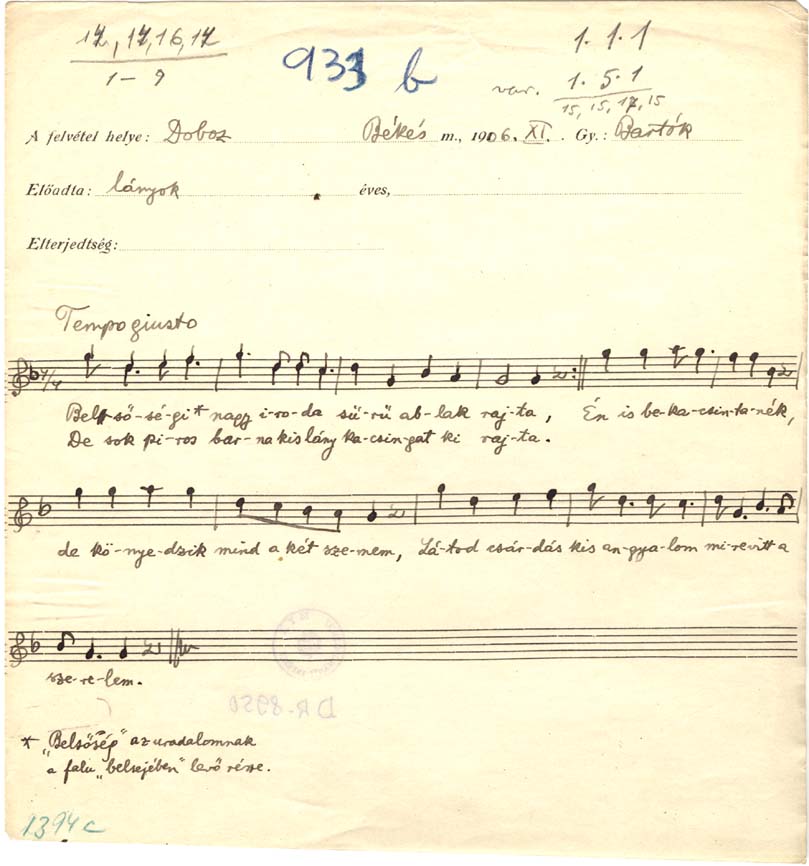 17, 17, 16, 17
1–9
933 b
1. 1. 1
var. 1. 5. 1
15, 15, 17, 15
A felvétel helye: Doboz Békés m., 1906. XI. Gy.: Bartók
Előadta: lányok éves,
Elterjedtség:
Tempo giusto
4/4
Bel-ső-sé-gi* nagy i-ro-da sü-rü ab-lak raj-ta, Én is be-ka-csin-ta-nék,
De sok pi-ros bar-na kis lány ka-csin-gat ki raj-ta.
de kö-nye-dzik mind a két sze-mem, Lá-tod csár-dás kis an-gya-lom mi-re vitt a
sze-re-lem.
DR-8950
* "Belsőség" az uradalomnak
a falu "belsejében" levő része.
1394c